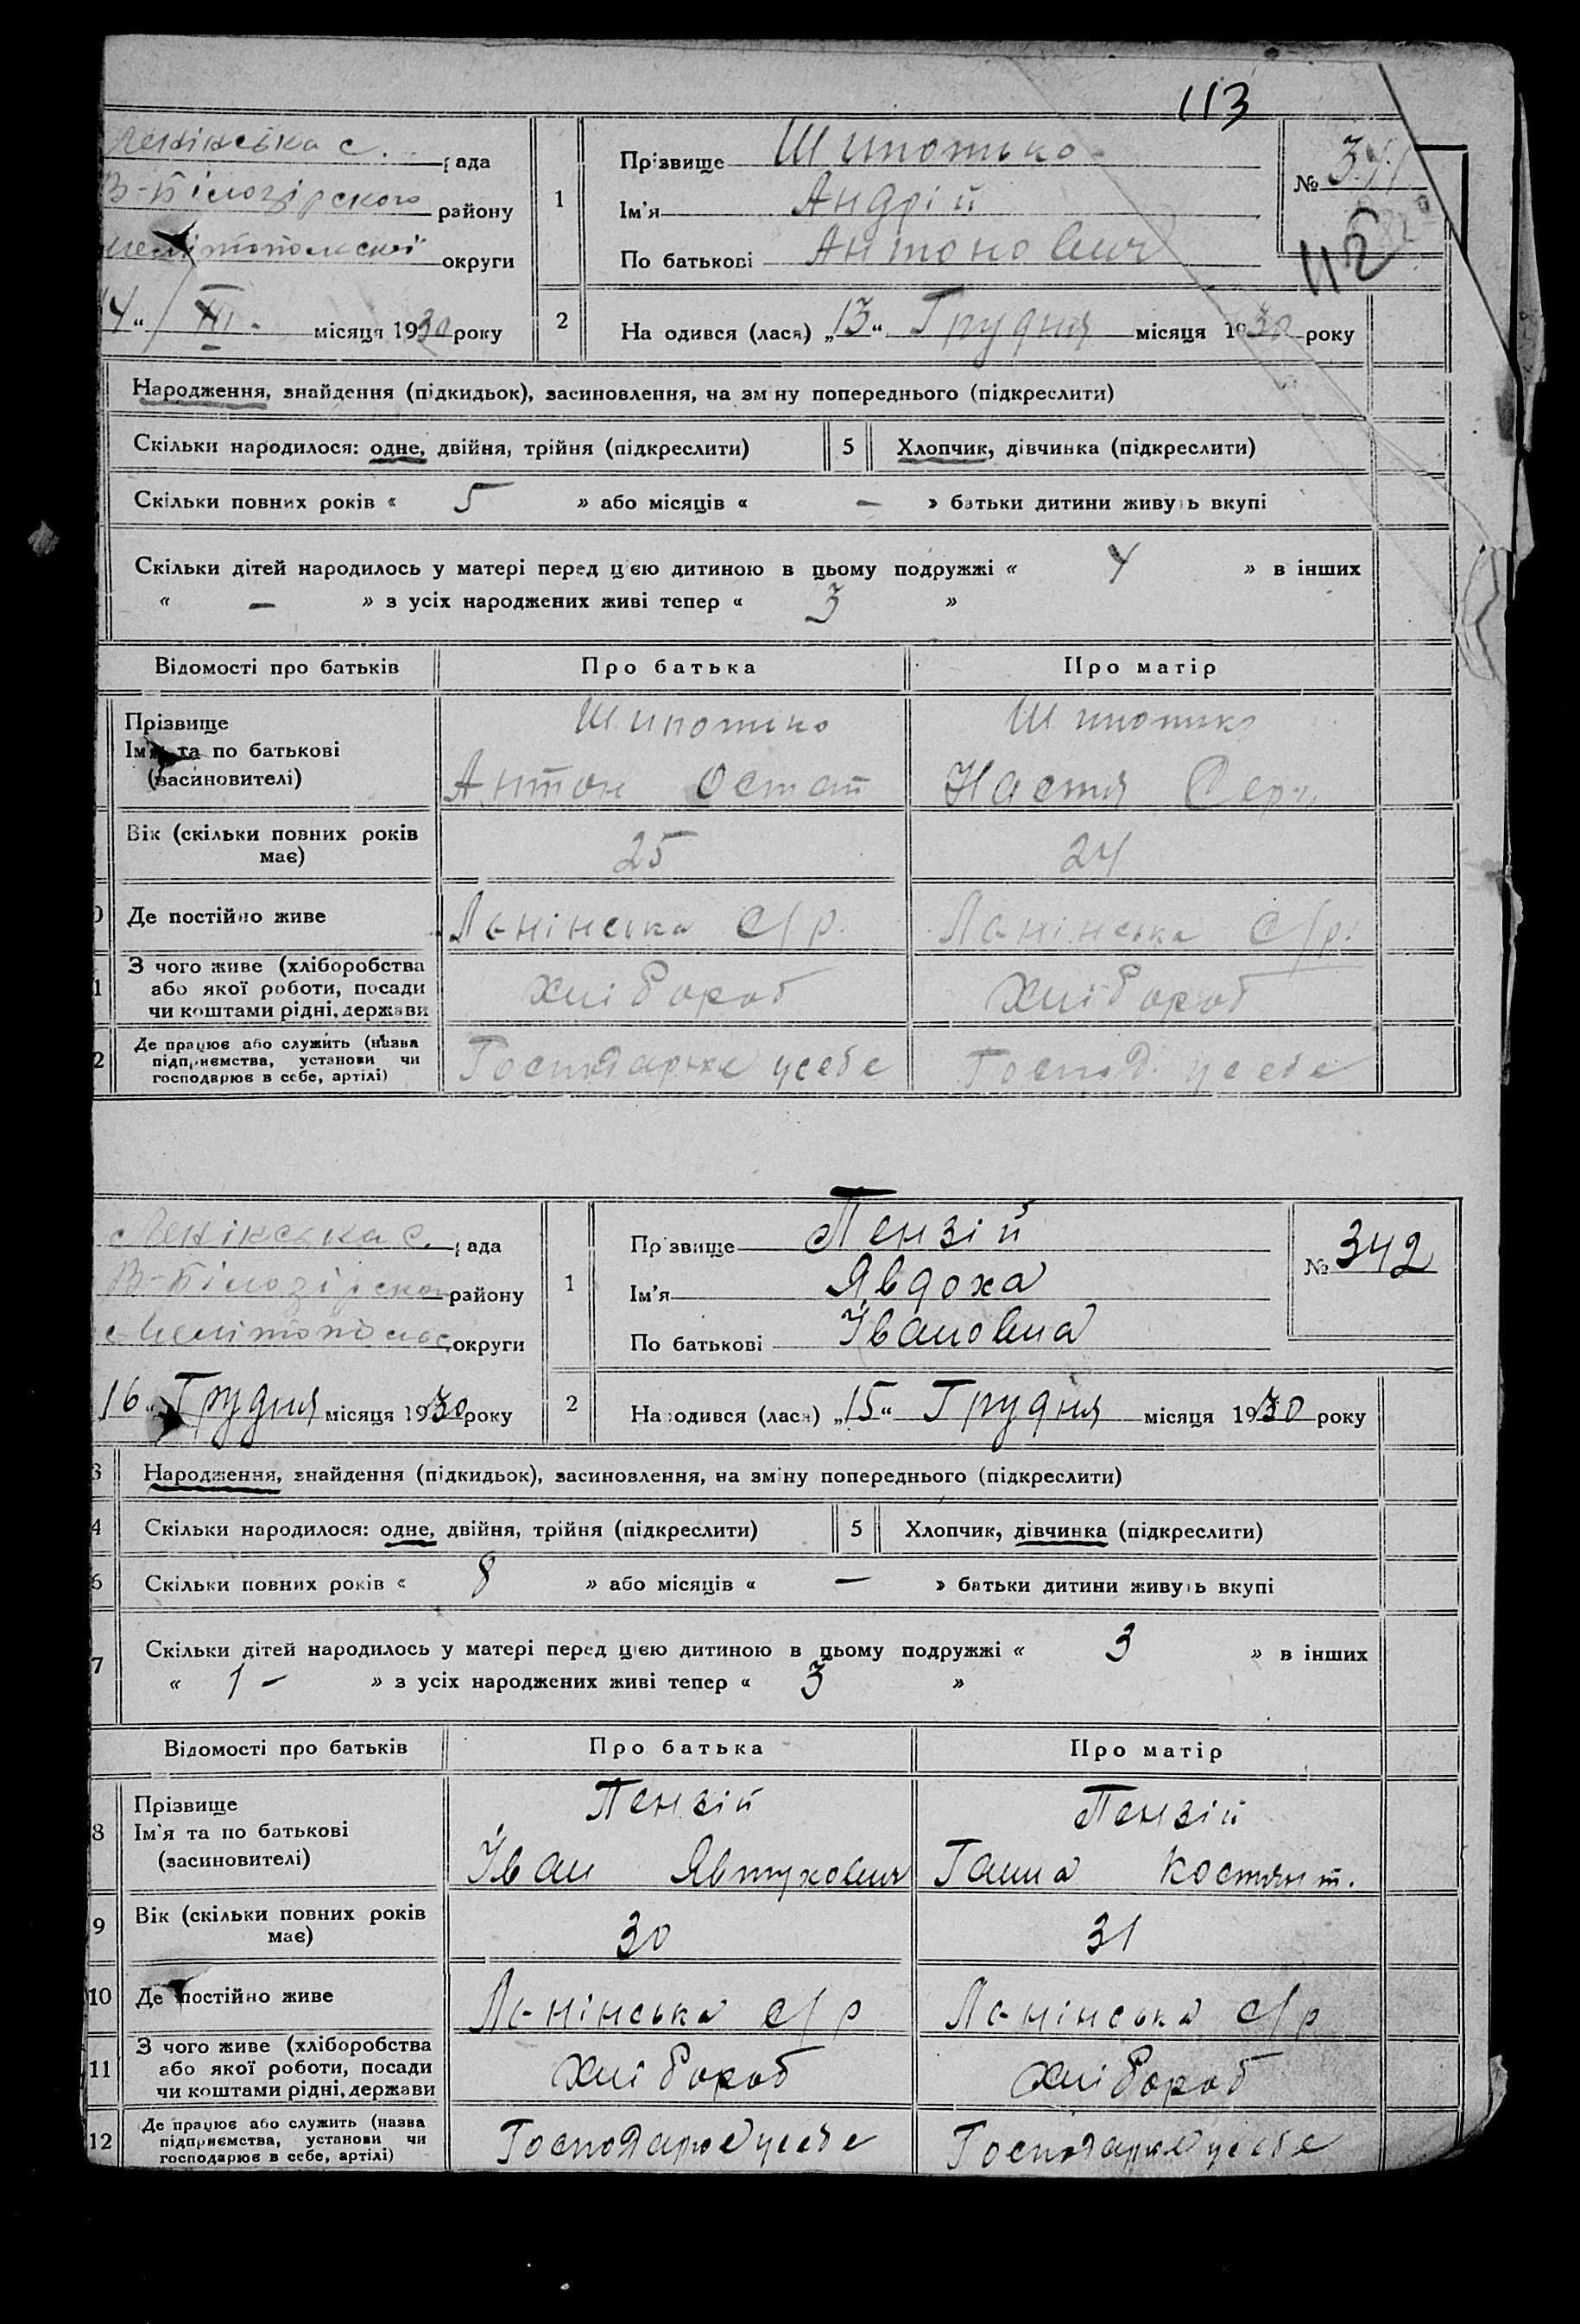 113
Ленінська с. рада
В-Білозірского району
Мелітопольскої округи
14 " XII - місяця 1930 року
1 Прізвище Шипотько
Ім'я Андрій
По батькові Антонович
№ 341
112
2 На одився (лася) „13" Грудня місяця 1930 року
Народження, знайдення (підкидьок), засиновлення, на зміну попереднього (підкреслити)
Скільки народилося: одне, двійня, трійня (підкреслити) 5 Хлопчик, дівчинка (підкреслити)
Скільки повних років « 5 » або місяців « — » батьки дитини живуть вкупі
Скільки дітей народилось у матері перед цією дитиною в цьому подружжі « 4 » в інших
« — » з усіх народжених живі тепер « 3 »
Відомості про батьків Про батька Про матір
Прізвище Шипотько Шипотько
Ім'я та по батькові
(засиновителі) Антон Остап Настя
Вік (скільки повних років
має) 25 24
Де постійно живе Ленінська С/р. Ленінська С/р.
З чого живе (хліборобства
або якої роботи, посади
чи коштами рідні, держави Хлібороб Хлібороб
Де працює або служить (назва
підприємства, установи чи
господарює в себе, артілі) Господарює усебе Господ. усебе
Ленінська с. рада
В-Білозірског району
Мелітопольс округи
16 " Грудня місяця 1930 року
1 Прізвище Пензій
Ім'я Явдоха
По батькові Івановна
№ 342
2 Народився (лася) „15" Грудня місяця 1930 року
3 Народження, знайдення (підкидьок), засиновлення, на зміну попереднього (підкреслити)
4 Скільки народилося: одне, двійня, трійня (підкреслити) 5 Хлопчик, дівчинка (підкреслити)
6 Скільки повних років « 8 » або місяців « — » батьки дитини живуть вкупі
7 Скільки дітей народилось у матері перед цією дитиною в цьому подружжі « 3 » в інших
« 1 - » з усіх народжених живі тепер « 3 »
Відомості про батьків Про батька Про матір
8 Прізвище Пензій Пензій
Ім'я та по батькові
(засиновителі) Іван Явтухович Ганна Костянт.
9 Вік (скільки повних років
має) 30 31
10 Де постійно живе Ленінська с/р Ленінська с/р
11 З чого живе (хліборобства
або якої роботи, посади
чи коштами рідні, держави Хлібороб Хлібороб
12 Де працює або служить (назва
підприємства, установи чи
господарює в себе, артілі) Господарює усебе Господарює усебе